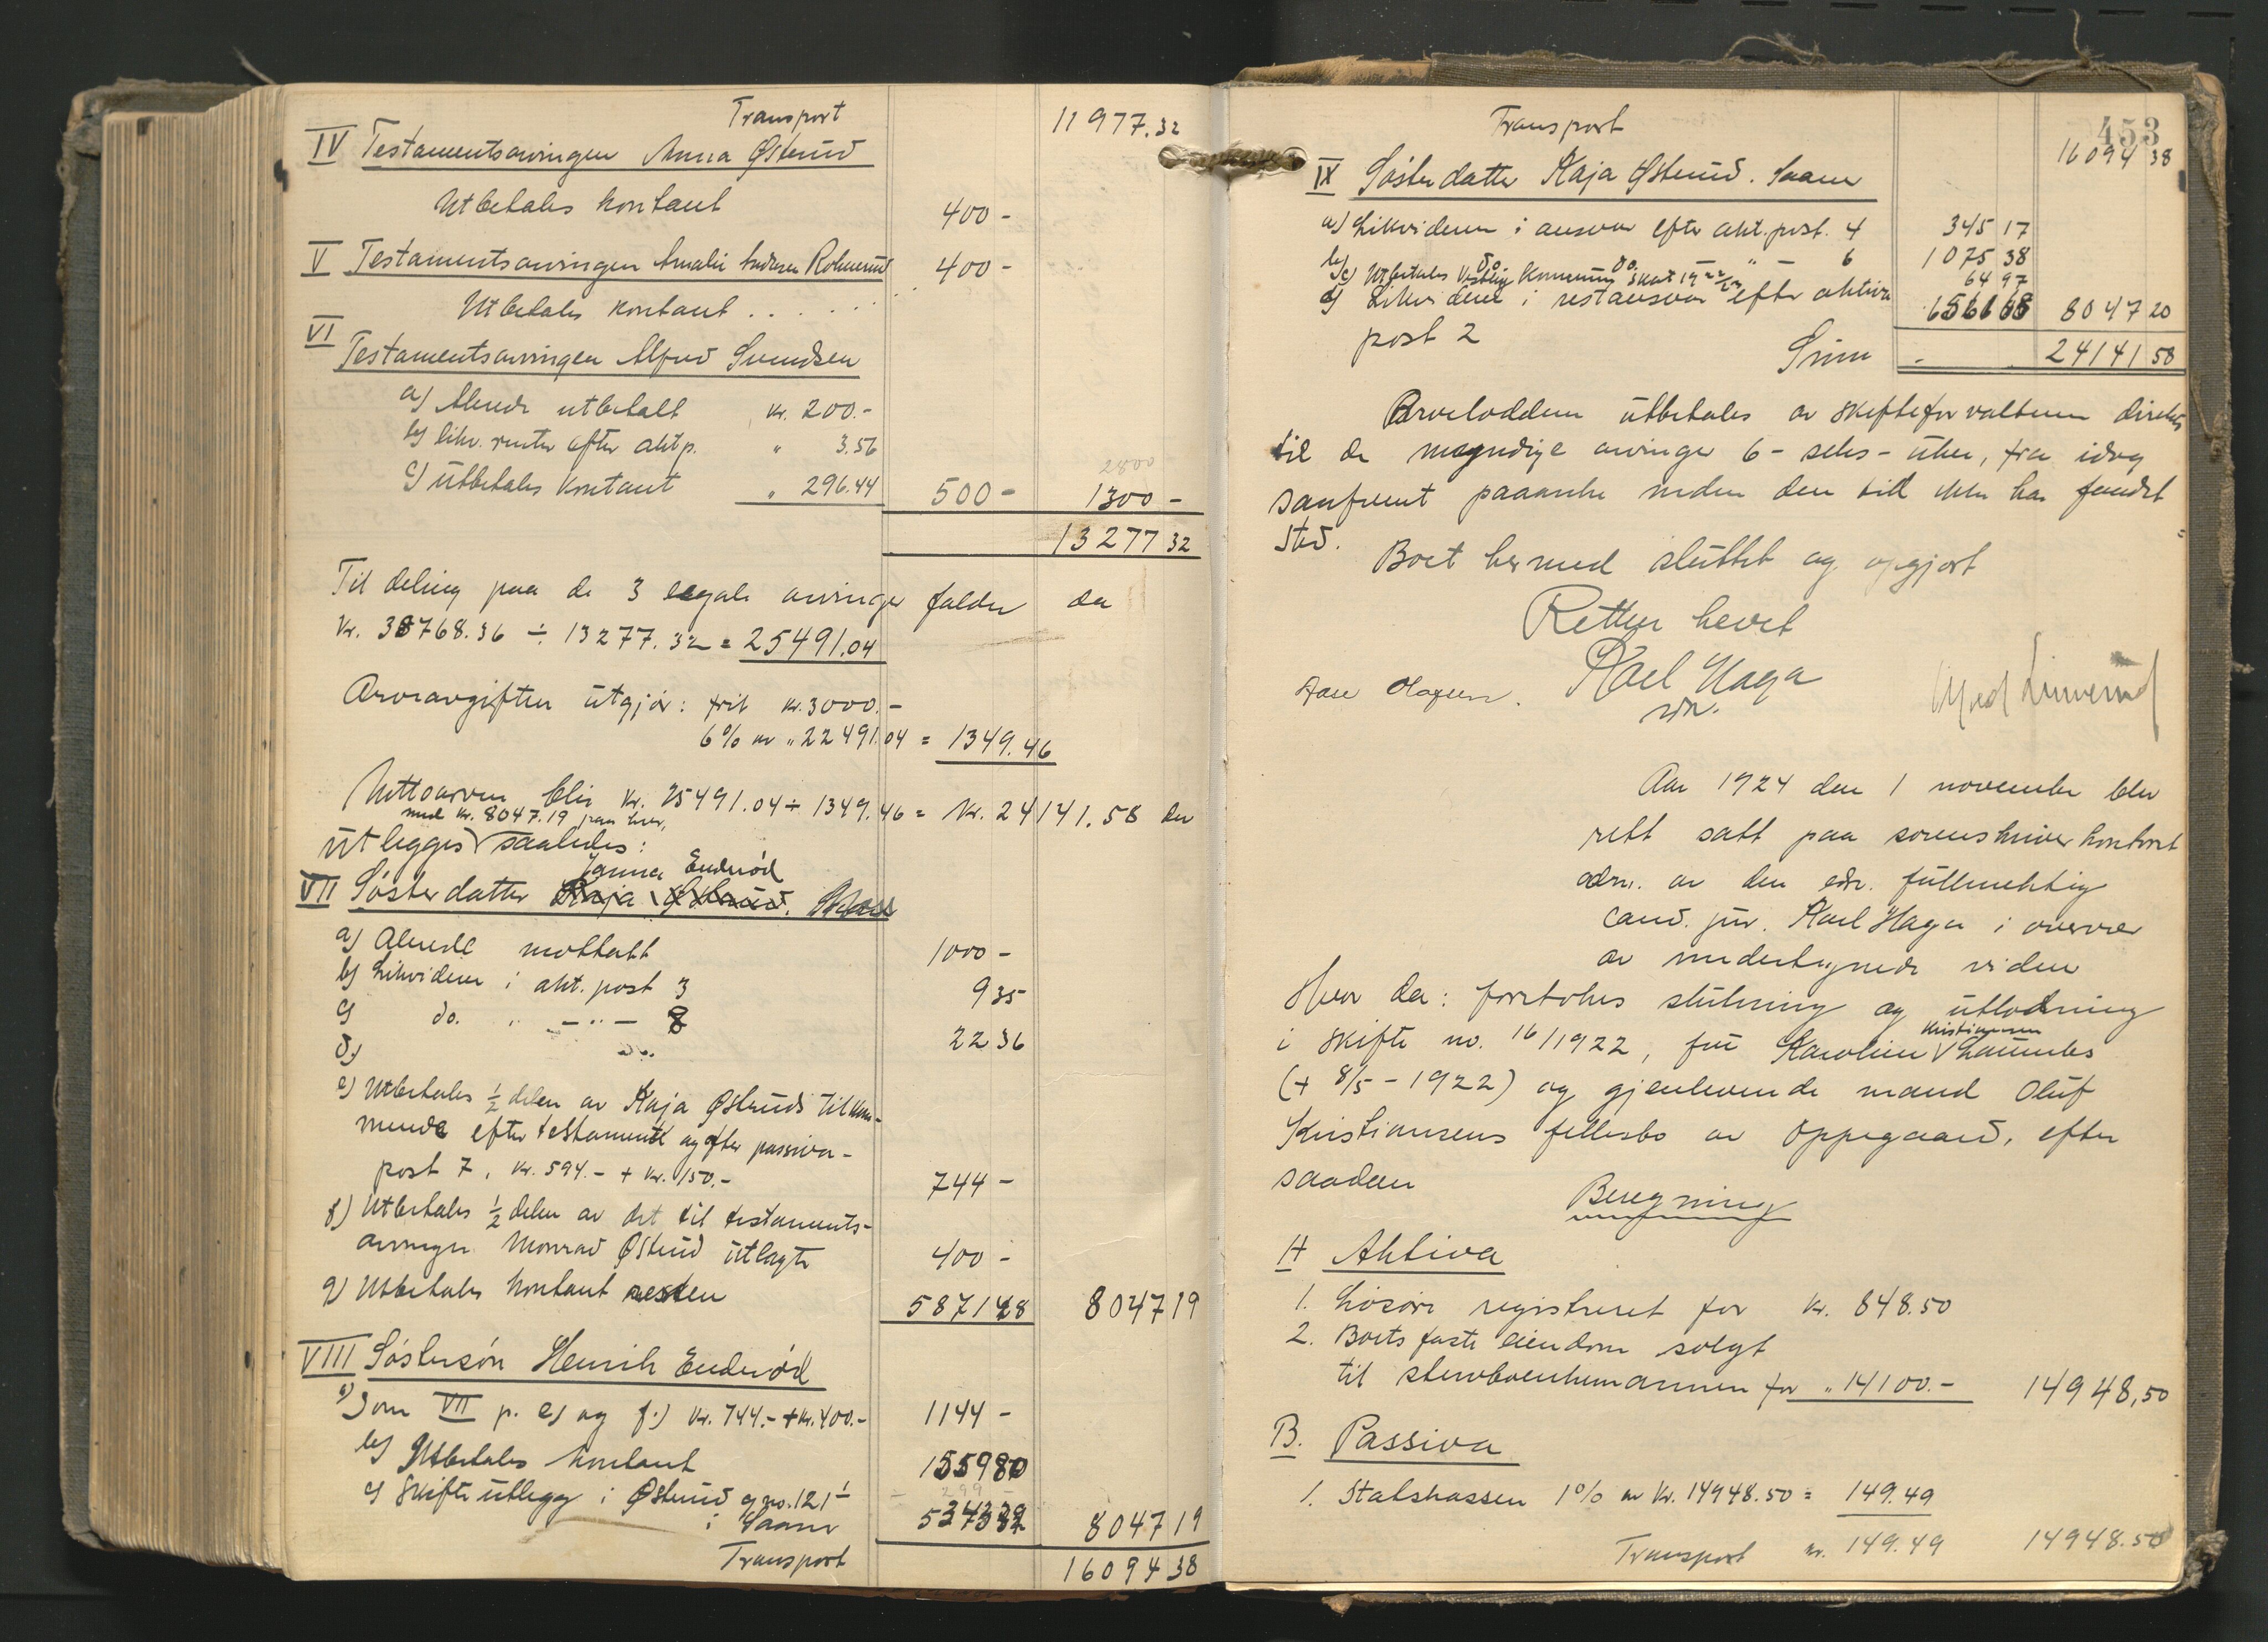 Transport 11977.32
IV Testamentsarvingen Anna Østerud
Utbetales kontant 400 -
V Testamentsarvingen Amalie Andersen 400 -
Utbetales kontant . . . . .
VI
Testamentsarvingen Alfred Svendsen
a) Allerede utbetalt kr. 200.-
b) likv. renter efter aktp. " 3.56
2800
c) Utbetales kontant " 296.44 500 - 1300 -
13277 32
Til deling paa de 3 legale arvinger falder da
Kr. 38768.36 ÷ 13277.32 = 25491.04
Arveavgiften utgjør: frit kr. 3000.-
6% av " 22491.04 = 1349.46
Nettoarven blir kr. 25491.04 ÷ 1349.46 = kr. 24141.58 der
med kr. 8047.19 paa hver,
utlegges saaledes:
Endrerød
VII Søsterdatter Kaja Østerud.
a) Allerede mottatt 1000 -
b) Likviderer i akt. post 3 935
c) do. " - " - 8 2236
d)
e) Utbetales ½ delen av Kaja Østeruds tilkom-
mende efter testamente og efter passiva-
post 7, kr. 594.- + kr. 150.- 744 -
f) Utbetales ½ delen av det til testaments-
arvingen Monrad Østerud utlagte 400 -
g) Utbetales kontant resten 5871 8047 19
VIII Søstersøn Henrik Endrerød
a) Som VII p. e) og f.) kr. 744.- + kr. 400.- 1144 -
b) Utbetales kontant 1559 80
299
c) Skifteutlegg i Østerud g.no. 121
i Saaner 5343 39 8047 19
Transport 16094 38
453
Transport 16094 38
IX Søsterdatter Kaja Østerud. Saaner
a) Likviderer i ansvar efter akt. post. 4 345 17
b) do do. - " - 6 1075 38
c) Utbetales Vestby kommune skat 1922/23 64 97
d) Likviderer i restansvar efter aktiva 6561 68 8047 20
post 2
Sum 24141 58
Arveloddene utbetales av skifteforvalteren direkte
til de myndige arvinger 6 - seks - uker, fra idag
sanfremt paaanke inden den tid ikke har fundet
sted.
Boet hermed sluttet og opgjort
Retten hevet
Karl Haga
Olafsen.
Aar 1924 den 1 november blev
rett satt paa sorenskriverkontoret
adm. av den edsv. fullmektig
cand. jur. Karl Haga i overvær
av undertegnede vidner
Hvor da: foretokes slutning og utlodning
Kristiansen
i skifte no. 16/1922, fru Karoline
(+ 8/5 - 1922) og gjenlevende mand Oluf
Kristiansens fellesbo av Oppegaard, efter
saadan
Beregning
A Aktiva
1. Løsøre registreret for kr. 848.50
2. Boets faste eiendom solgt
til sterboenkemannen for " 14100.- 14948,50
B. Passiva
1. Statskassen 1% av kr. 14948.50 = 149.49
Transport kr. 149.49 14948.50